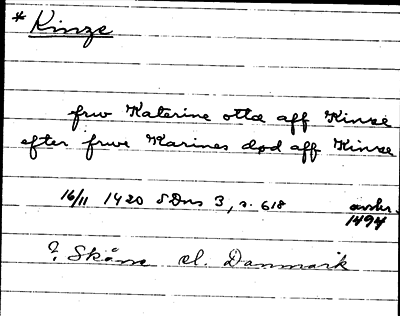 * Kinze
frw Katerine otta aff Kinzé
efter frwe Karines død aff Kinze
16/11 1420 SDns 3, s. 618 avskr.
1494
?. Skåne el. Danmark